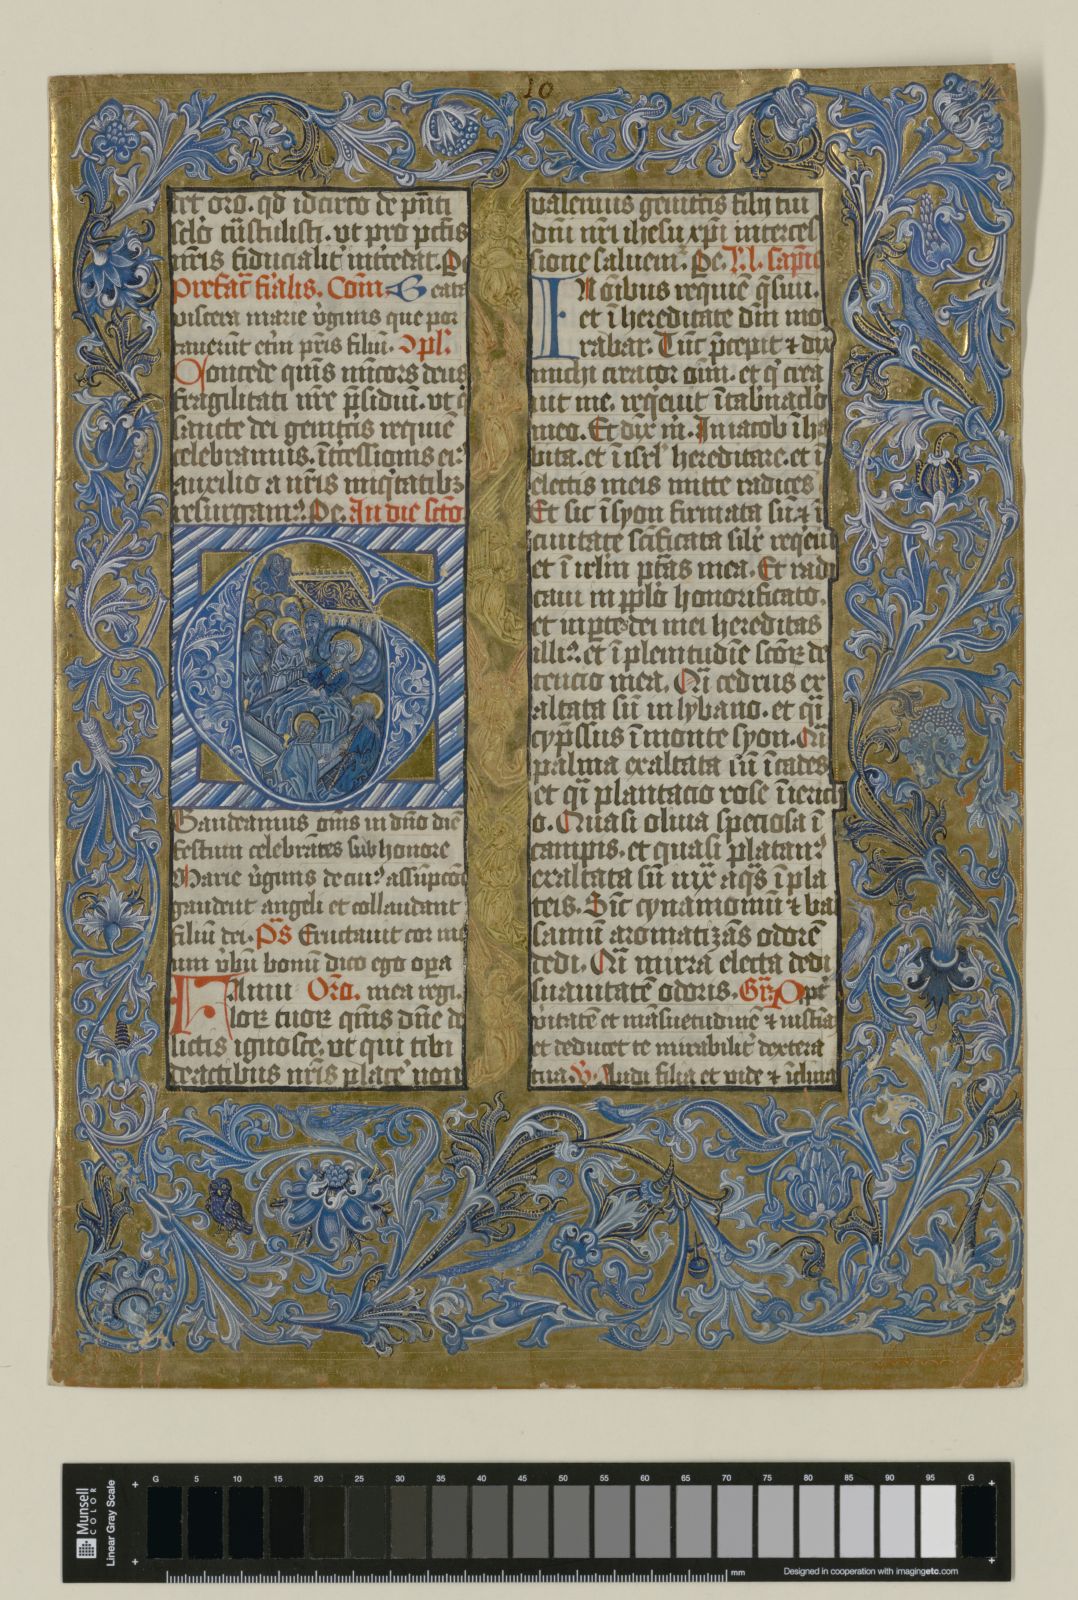 10
cet oro. qd idcirco de pnti
sclo tnstulisti. ut pro pctis
nris fiducialit intcedat. Pe
prefat fialis. Com. Beata
viscera marie vginis que por
tauerut etni pris filiu. Opl.
Concede quis miscors deus
fragilitati nre psidiu. ut q
sancte dei genitcis requie
celebramus. itcessionis ei
auxilio a nris iniqtatibz
resurgam. Pe. In die scto
Gaudeamus oms in dno die
festum celebrates sub honore
Marie vginis de cui assupcoe
gaudent angeli et collaudant
filiu dei. Ps Eructauit cor me
um vbu bonu dico ego opera
Famu Oro. mea regi.
lor tuor quis dne de
lictis ignosce. ut qui tibi
de actibus nris place non
valemus genitcis filij tui
dni nri ihesu xpi interces
sione saluem. Pe. L. l. sapie
In oibus requie qsiui.
et i hereditate dni mo
rabar. Tuc pcepit & dix
michi creator oim. et q crea
uit me. reqeuit i tabnaclo
meo. Et dix m. In iacob iha
bita. et i isrl hereditare. et i
electis meis mitte radices
Et sic i syon firmata su & i
ciuitate scificata silr reqeui
et i irlm ptas mea. Et radi
caui in pplo honorificato.
et in ptes dei mei hereditas
illi. et i plenitudie scor de
tencio mea. Qi cedrus ex
altata su in lybano. et qi
cypssus i monte syon. Qi
palma exaltata su i cades
et qi plantacio rose i ierich
o. Quasi oliua speciosa i
campis. et quasi platan
exaltata su iux aqs i pla
teis. Sic cynamomu & bal
samu aromatizas odore
dedi. Qi mirra electa dedi
suauitate odoris. Gr. Opt
veritate et masuetudine & iusticia
et deducet te mirabilit dextera
tua. V. Audi filia et vide & iclina
Munsell
COLOR
Linear Gray Scale
G 5 10 15 20 25 30 35 40 45 50 55 60 65 70 75 80 85 90 95 G
mm
Designed in cooperation with imagingetc.com